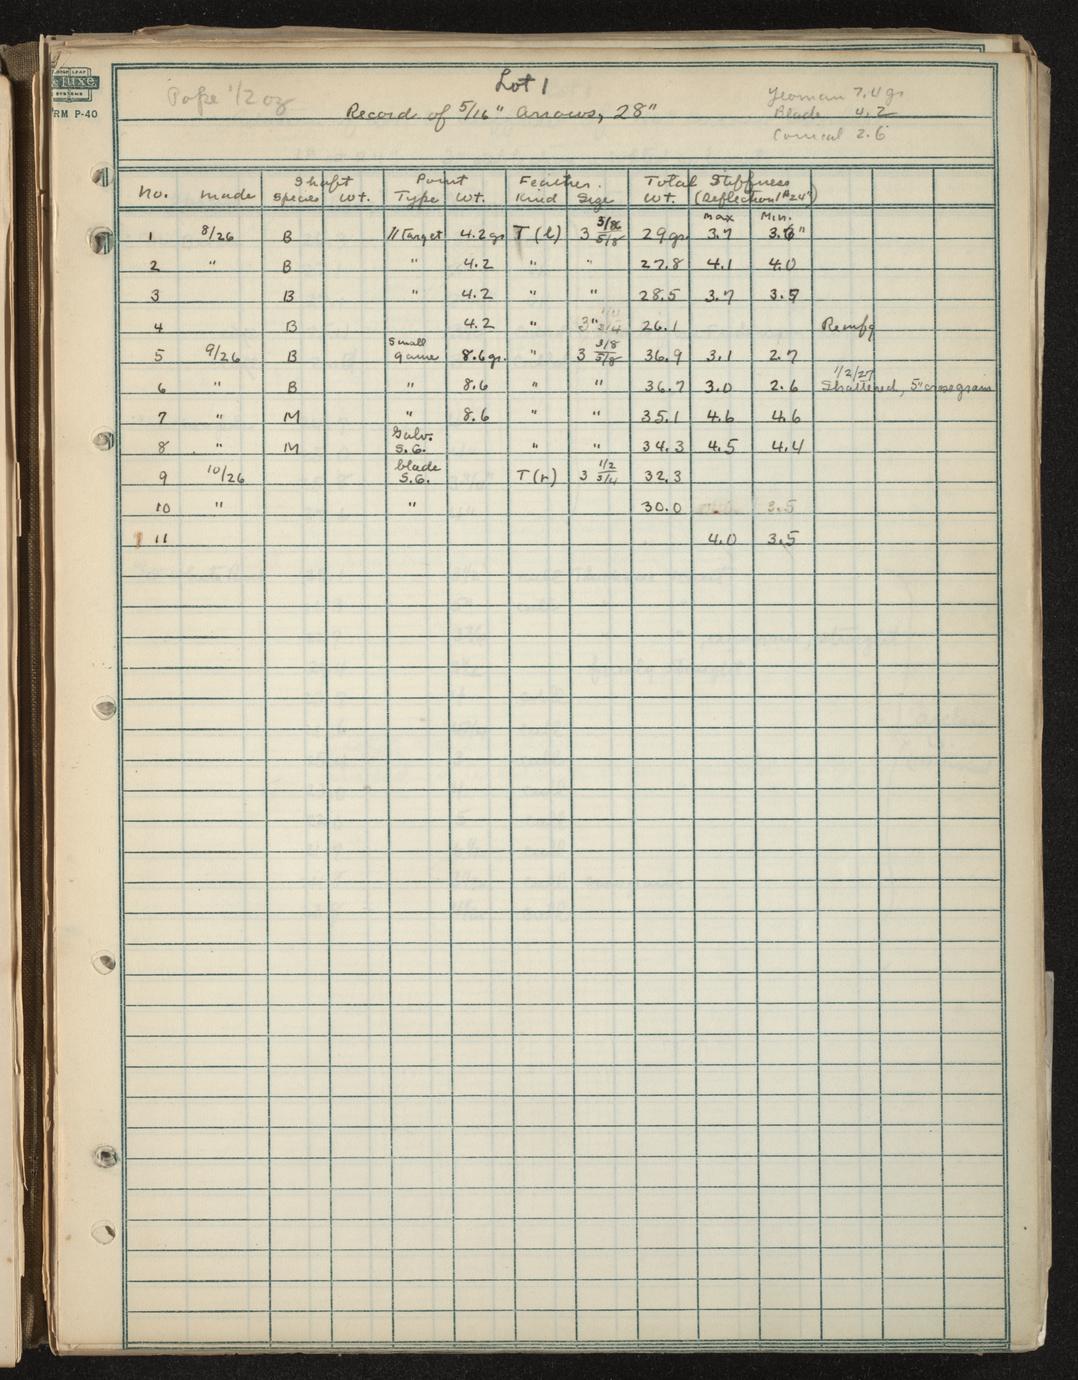 LOOSE LEAF
de Luxe
SYSTEMS
RM P-40
Lot 1
Pope 1/2 oz
Record of 5/16" arrows, 28"
Yeoman 7.4 gs
Blade 4.2
Conical 2.6
Shaft Point Feather Total Stiffness
No. made Species Wt. Type Wt. Kind Size Wt. (Deflection 1# 24")
max Min.
1 8/26 B // Target 4.2 gs T (l) 3 5/8 29 gs 3.7 3.6"
2 " B " 4.2 " " 27.8 4.1 4.0
3 B " 4.2 " " 28.5 3.7 3.5
4 B 4.2 " 3" 3/4 26.1
5 9/26 B Small game 8.6 gr. " 3 3/8 5/8 36.9 3.1 2.7
6 " B " 8.6 " " 36.7 3.0 2.6 1/2/27 Shattered, 5" cross grain
7 " M " 8.6 " " 35.1 4.6 4.6
8 " M Galv. S.G. " " 34.3 4.5 4.4
9 10/26 blade S.G. T (r) 3 1/2 3/4 32.3
10 " " 30.0 3.5
11 4.0 3.5